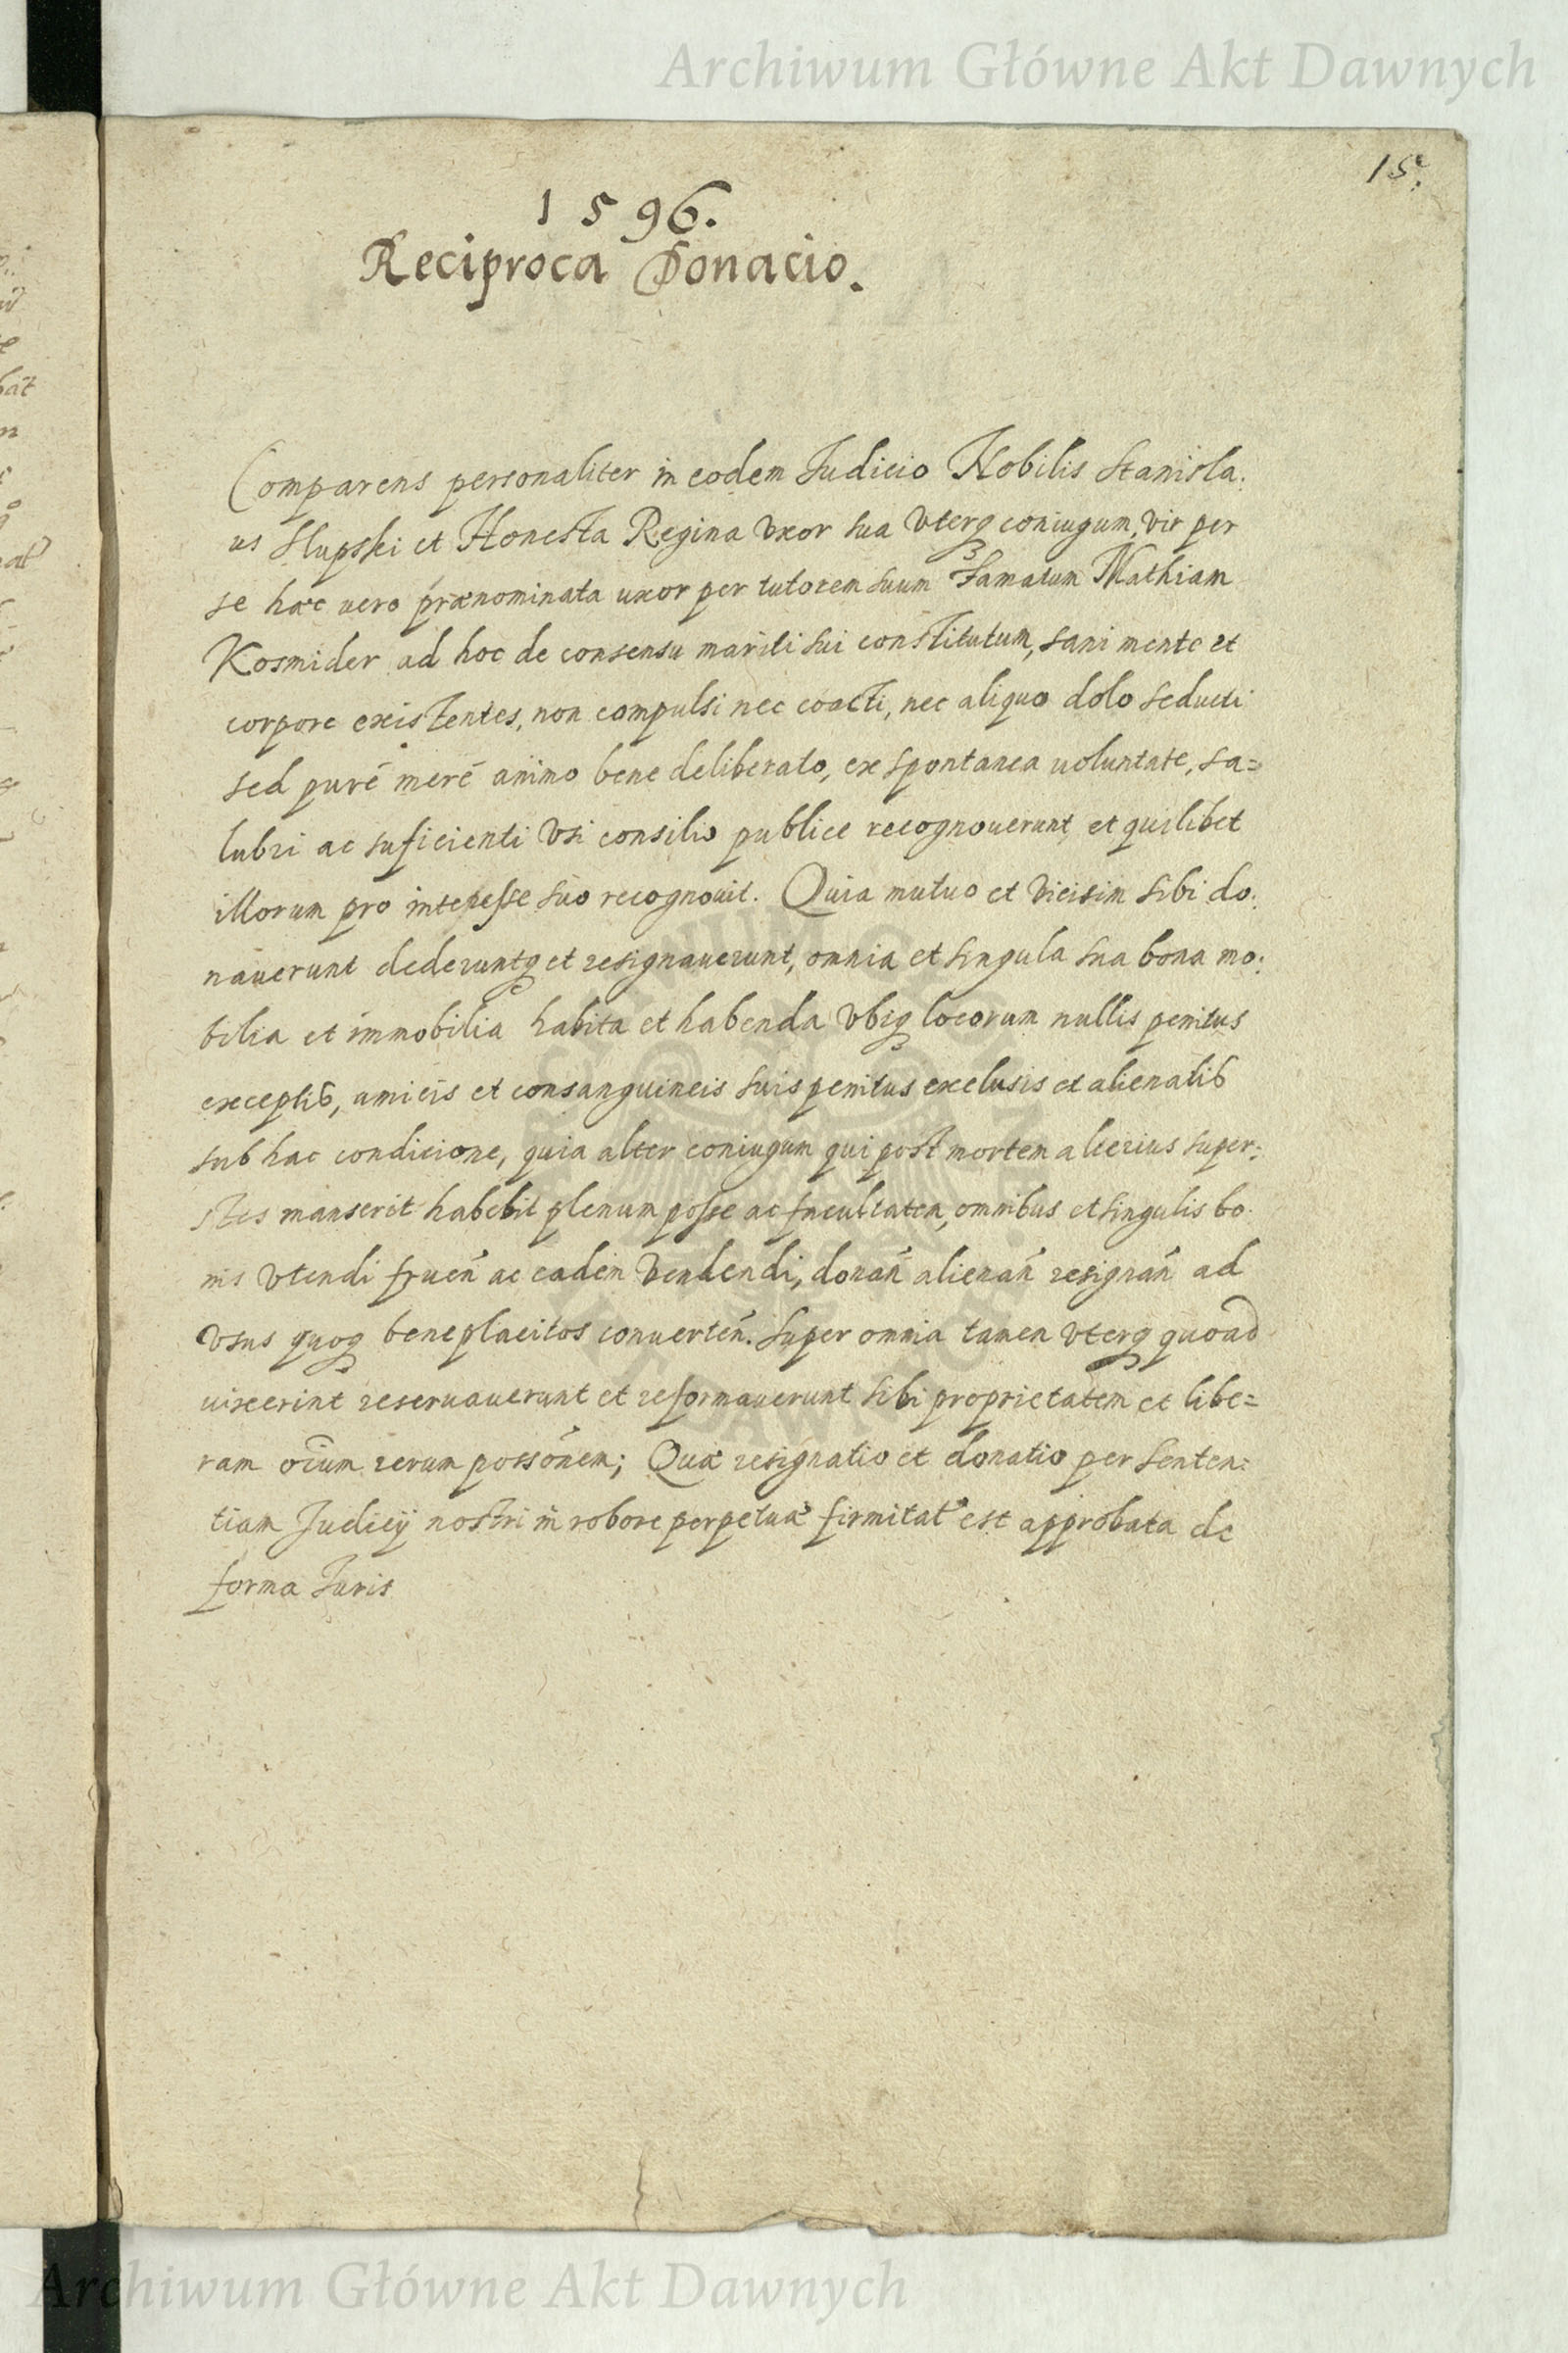 Archiwum Główne Akt Dawnych
15.
1596.
Reciproca Donacio.
Comparens personaliter in eodem Iudicio Nobilis Stanisla:
us Slupski et Honesta Regina vxor sua vterq3 coniugum, vir per
se hæc uero prænominata uxor per tutorem suum Famatum Mathiam
Kosmider ad hoc de consensu mariti sui constitutum, sani mente et
corpore existentes, non compulsi nec coacti, nec aliquo dolo seducti
sed purè merè animo bene deliberato, ex spontanea uoluntate, sa=
lubri ac suficienti vsi consilio publice recognouerunt, et quilibet
illorum pro interesse suo recognouit. Quia mutuo et vicisim sibi do:
nauerunt dederuntq3 et resignauerunt, omnia et singula sua bona mo:
bilia et immobilia habita et habenda vbiq3 locorum nullis penitus
exceptib, amicis et consanguineis suis penitus exclusis et alienatib
sub hac condicione, quia alter coniugum qui post mortem alterius super:
stes manserit habebit plenum posse ac facultatem, omnibus et singulis bo:
nis vtendi fruen̄ ac eadem vendendi, donan̄ alienan̄ resignan̄ ad
vsus quoq3 beneplacitos conuerten̄. Super omnia tamen vterq3 quoad
uixerint reseruauerunt et reformauerunt sibi proprietatem et libe=
ram oīum rerum possōnem; Quæ resignatio et donatio per senten:
tiam Judicij nostri in robore perpetuæ firmitat est approbata de
forma Iuris
Archiwum Główne Akt Dawnych